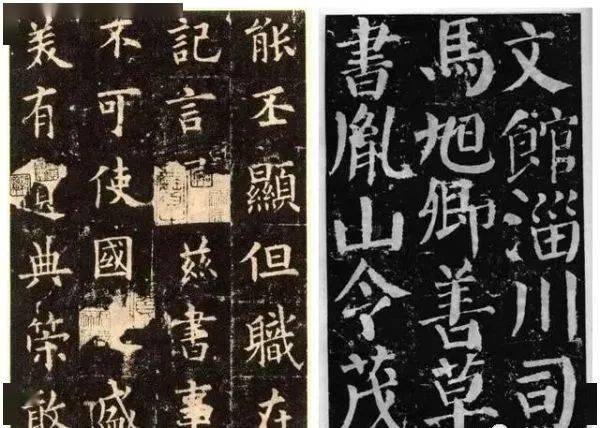 能丕顯但職在
記言茲書事
不可使國盛
美有典策敢
文館淄川司
馬旭卿善草
書胤山令茂